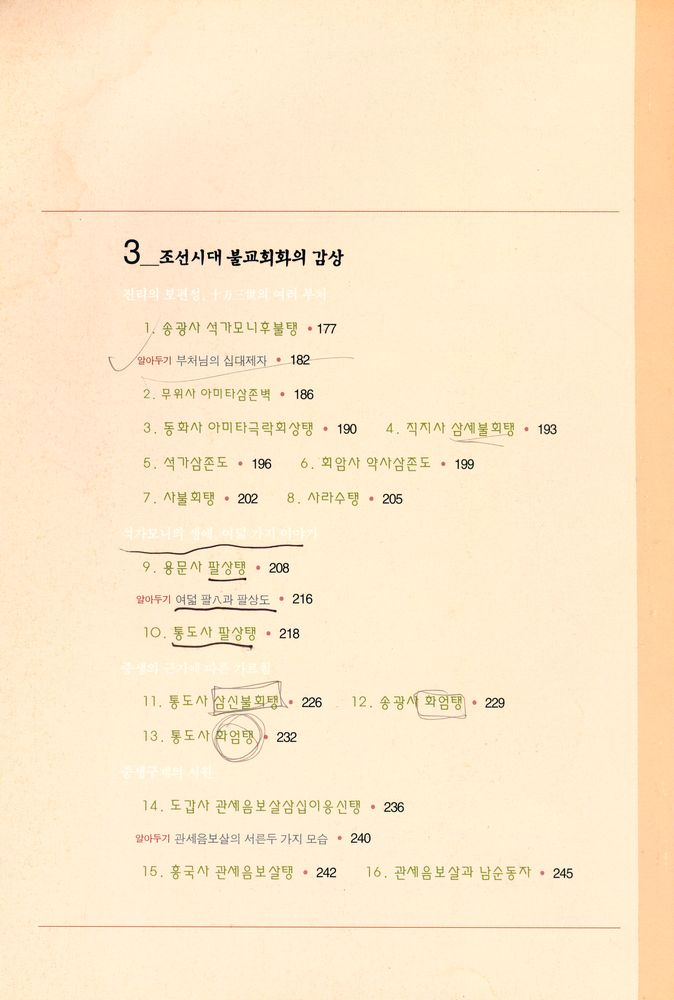 3_조선시대 불교회화의 감상
진리의 보편성, 十方三世의 여러 부처
1. 송광사 석가모니후불탱 • 177
알아두기 부처님의 십대제자 • 182
2. 무위사 아미타삼존벽 • 186
3. 동화사 아미타극락회상탱 • 190 4. 직지사 삼세불회탱 • 193
5. 석가삼존도 • 196 6. 회암사 약사삼존도 • 199
7. 사불회탱 • 202 8. 사라수탱 • 205
석가모니의 생애, 여덟 가지 이야기
9. 용문사 팔상탱 • 208
알아두기 여덟 팔八과 팔상도 • 216
10. 통도사 팔상탱 • 218
중생의 근기에 따른 가르침
11. 통도사 삼신불회탱 • 226 12. 송광사 화엄탱 • 229
13. 통도사 화엄탱 • 232
중생구제의 서원
14. 도갑사 관세음보살삼십이응신탱 • 236
알아두기 관세음보살의 서른두 가지 모습 • 240
15. 흥국사 관세음보살탱 • 242 16. 관세음보살과 남순동자 • 245